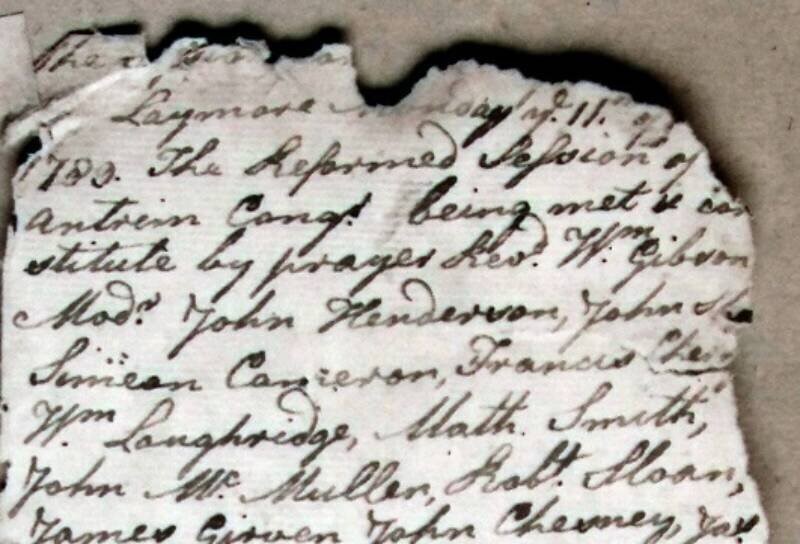 The
Laymore Monday ye. 11th of
1789. The Reformed Session of
Antrim Congt. being met & con
stitute by prayer Revd. Wm. Gibson
Modr. John Henderson, John
Simeon Cameron, Francis
Wm Loughridge, Math. Smith,
John Mc. Mullen, Robt. Sloan,
James Girven John Chesney, Jas